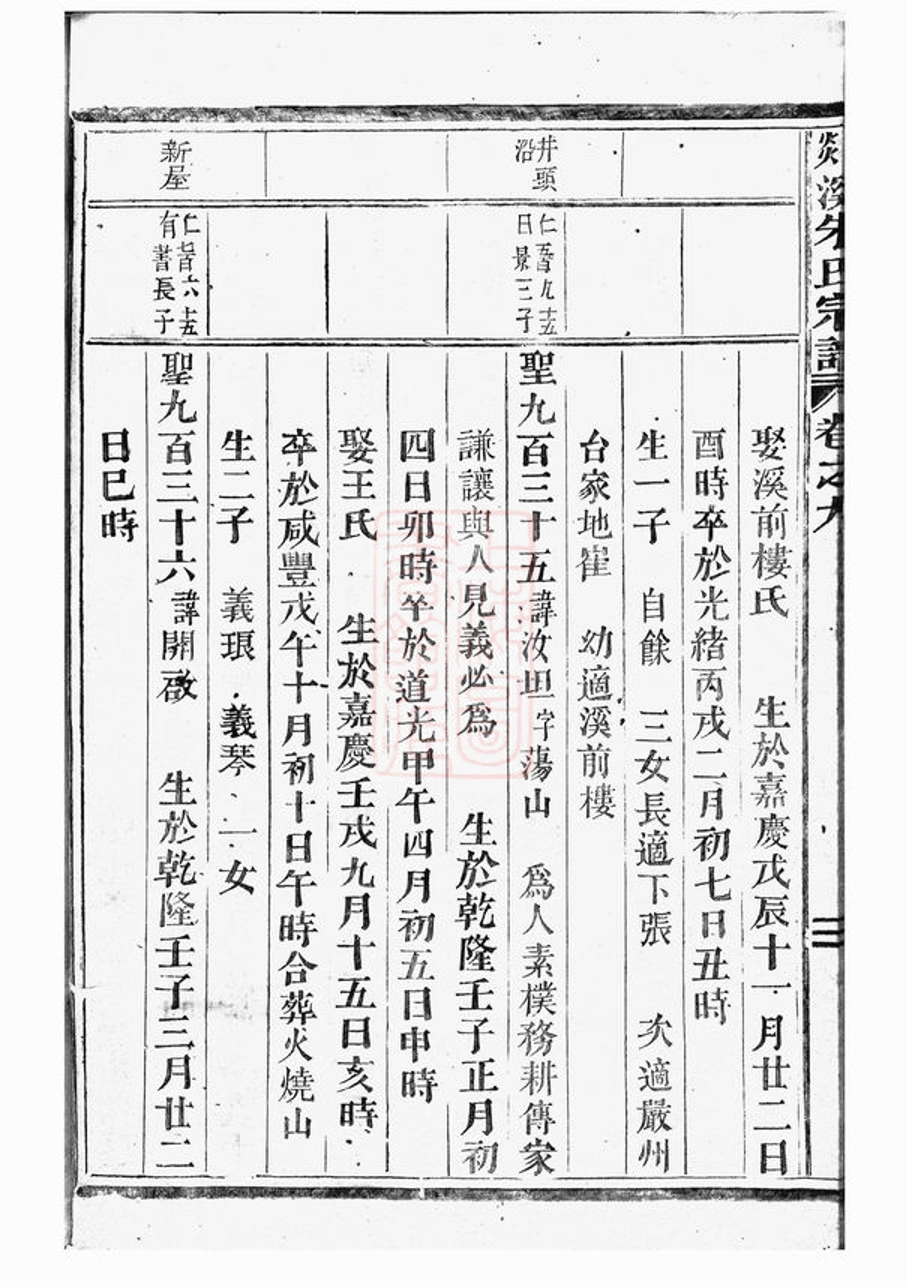 溪朱氏宗譜 卷之九
二
娶溪前樓氏 生於嘉慶戊辰十一月廿二日
酉時卒於光緒丙戌二月初七日丑時
生一子 自餘 三女長適下張 次適嚴州
台家地崔 幼適溪前樓
井頭
沿
仁五百九十五
日景三子
聖九百三十五諱汝坦字蕩山 為人素樸務耕傳家
謙讓與人見義必為 生於乾隆壬子正月初
四日卯時卒於道光甲午四月初五日申時
娶王氏 生於嘉慶壬戌九月十五日亥時
卒於咸豐戊午十月初十日午時合葬火燒山
生二子 義珢 義琴 一女
新屋
仁七百六十五
有書長子
聖九百三十六諱開啟 生於乾隆壬子三月廿二
日巳時